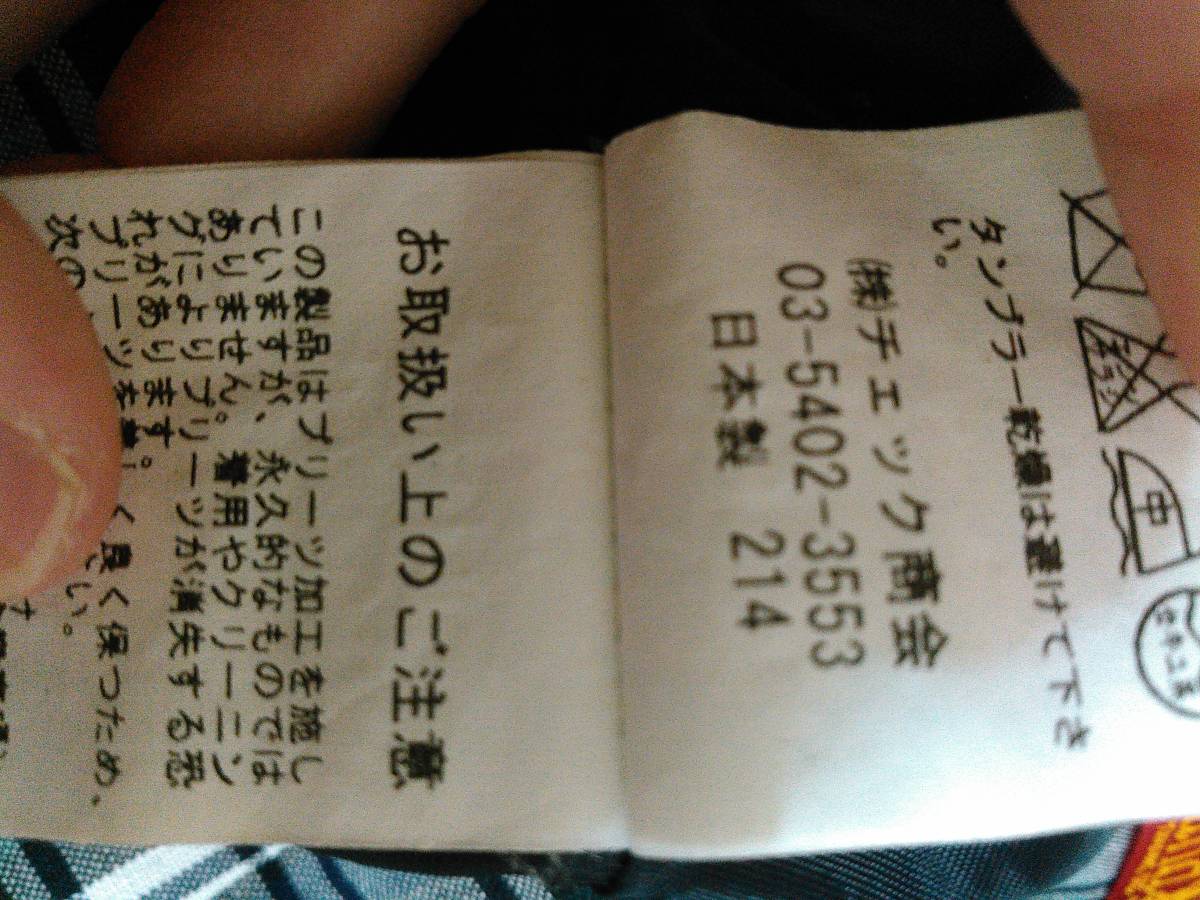 エンソサラシ
中
タンブラー乾燥は避けて下さ
い。
㈱チェック商会
03-5402-3553
日本製 214
お取扱い上のご注意
この製品はプリーツ加工を施し
ていますが、永久的なものでは
ありません。着用やクリーニン
グによりプリーツが消失する恐
れがあります。
プリーツを く良く保つため、
次の い。